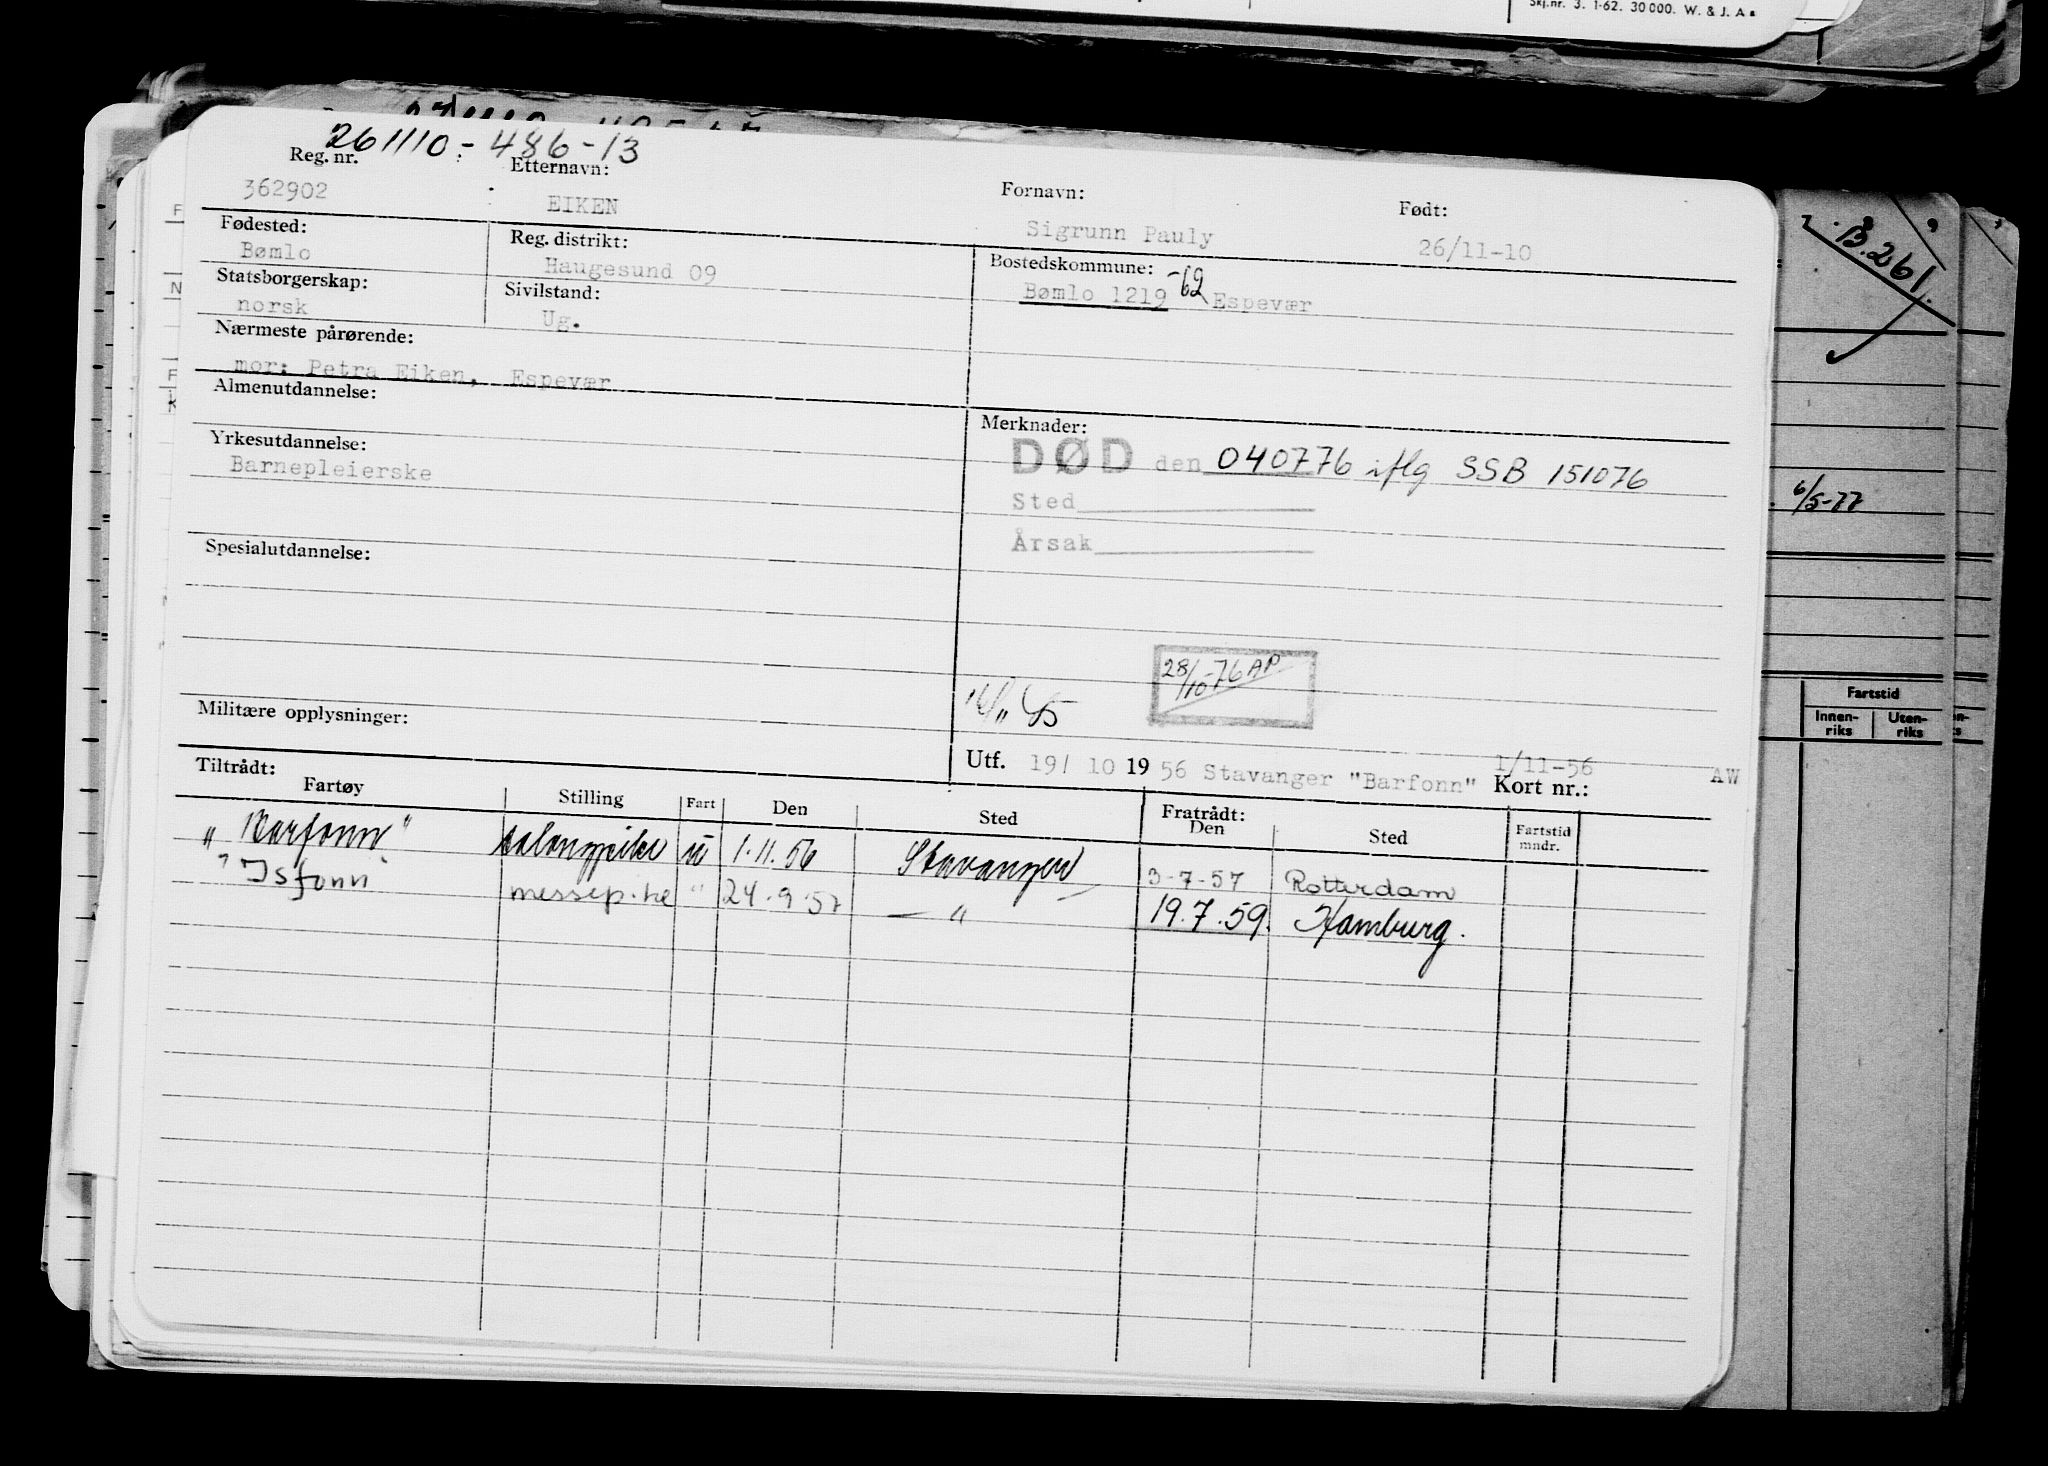 Skj.nr. 3. 1-62. 30 000. W. & J. A.
261110-486-13
Reg. nr. Etternavn: Fornavn: Født:
362902 EIKEN Sigrunn Pauly 26/11-10
Fødested: Reg. distrikt: Bostedskommune:
Bømlo Haugesund 09 Bømlo 1219 -62 Espevær
Statsborgerskap: Sivilstand:
norsk Ug.
Nærmeste pårørende:
mor: Petra Eiken, Espevær
Almenutdannelse: Merknader:
DØD den 040776 iflg SSB 151076
Yrkesutdannelse:
Barnepleierske
Sted
Årsak
Spesialutdannelse:
28/10-76 AP
Militære opplysninger:
Utf. 19/ 10 1956 Stavanger "Barfonn" 1/11-56 Kort nr.: AW
Tiltrådt: Fratrådt:
Fartøy Stilling Fart Den Sted Den Sted Fartstid mndr.
"Barfonn" salongpike u 1.11.56 Stavanger 3-7-57 Rotterdam
"Isfonn" messep.ke " 24.9.57 — " 19.7.59. Hamburg.
B.261.
6/5-77
Fartstid
Innen-riks Uten-riks